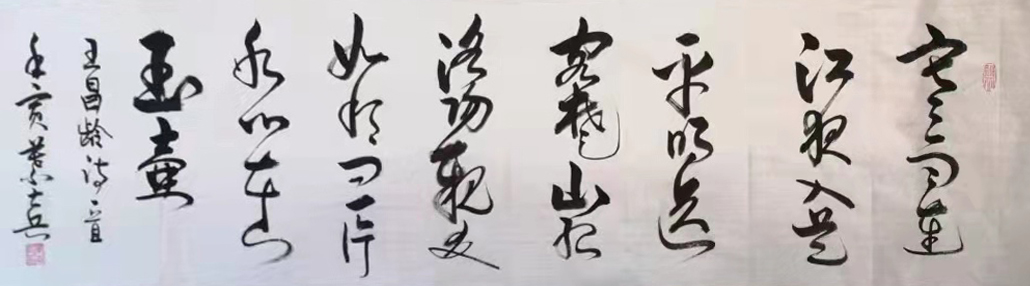 寒雨连
江夜入吴
平明送
客楚山孤
洛阳亲友
如相问一片
冰心在
玉壶
王昌龄诗一首
壬寅